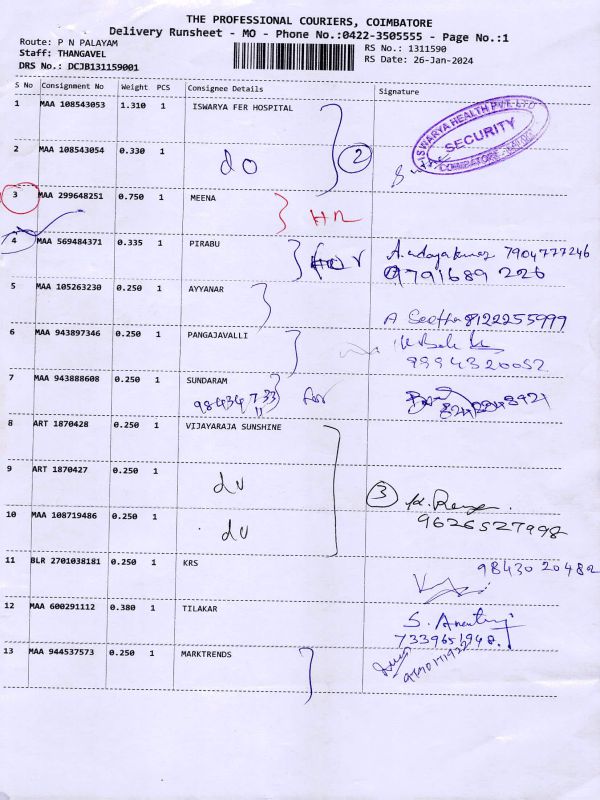 THE PROFESSIONAL COURIERS, COIMBATORE
Delivery Runsheet - MO - Phone No.:0422-3505555 - Page No.:1
Route: P N PALAYAM
Staff: THANGAVEL
DRS No.: DCJB131159001
RS No.: 1311590
RS Date: 26-Jan-2024
S No Consignment No Weight PCS Consignee Details Signature
1 MAA 108543053 1.310 1 ISWARYA FER HOSPITAL
ISWARYA HEALTH PVT LTD
SECURITY
COIMBATORE
2 MAA 108543054 0.330 1 do 2
3 MAA 299648251 0.750 1 MEENA
4 MAA 569484371 0.335 1 PIRABU A. udayakumar 7904777246
9791689 226
5 MAA 105263230 0.250 1 AYYANAR
A Seetha 8122255999
6 MAA 943897346 0.250 1 PANGAJAVALLI
9994320052
7 MAA 943888608 0.250 1 SUNDARAM
98434 733 for
11
8 ART 1870428 0.250 1 VIJAYARAJA SUNSHINE
9 ART 1870427 0.250 1 du 3
10 MAA 108719486 0.250 1 du 9626527998
11 BLR 2701038181 0.250 1 KRS 98430 20482
12 MAA 600291112 0.380 1 TILAKAR S.
7339651948.
13 MAA 944537573 0.250 1 MARKTRENDS